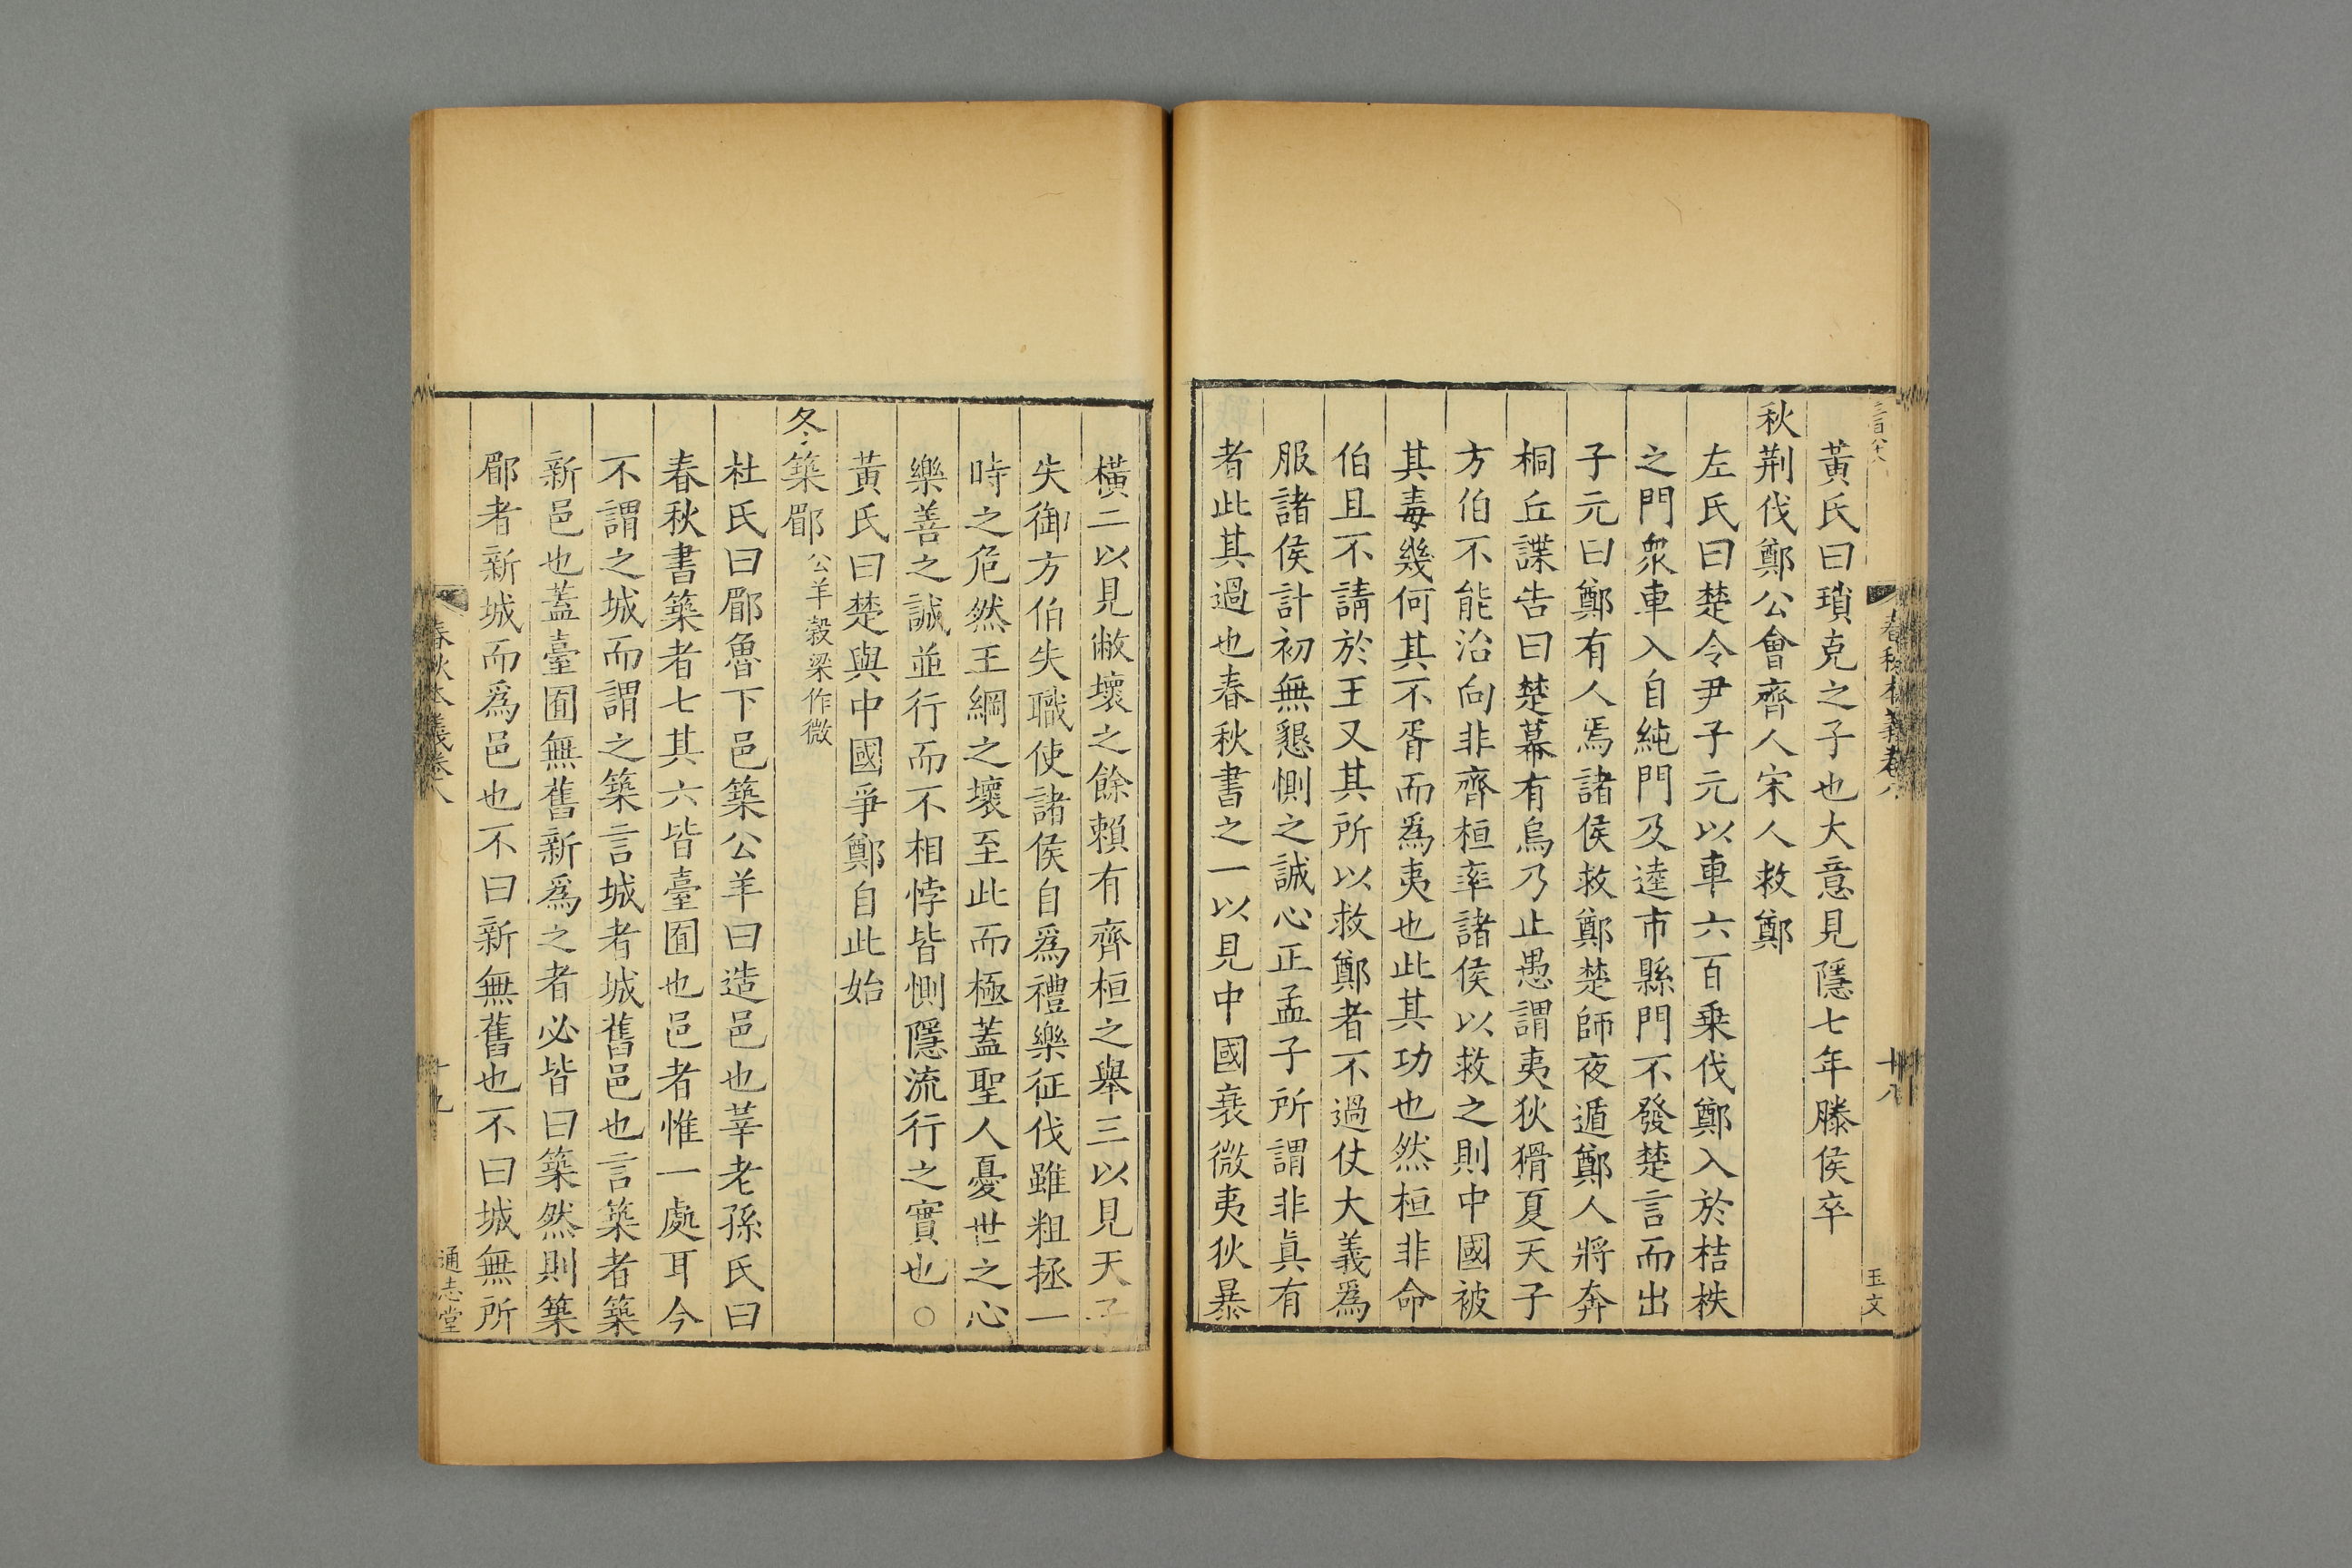 三百八十八
春秋本義卷八
十八
玉文
黃氏曰瑣克之子也大意見隱七年滕侯卒
秋荆伐鄭公會齊人宋人救鄭
左氏曰楚令尹子元以車六百乗伐鄭入於桔柣
之門衆車入自純門及逵市縣門不發楚言而出
子元曰鄭有人焉諸侯救鄭楚師夜遁鄭人將奔
桐丘諜告曰楚幕有烏乃止愚謂夷狄猾夏天子
方伯不能治向非齊桓率諸侯以救之則中國被
其毒幾何其不胥而爲夷也此其功也然桓非命
伯且不請於王又其所以救鄭者不過仗大義爲
服諸侯計初無懇惻之誠心正孟子所謂非眞有
者此其過也春秋書之一以見中國衰微夷狄暴
橫二以見敝壞之餘頼有齊桓之舉三以見天子
失御方伯失職使諸侯自爲禮樂征伐雖粗拯一
時之危然王綱之壞至此而極蓋聖人憂世之心
樂善之誠並行而不相悖皆惻隱流行之實也○
黃氏曰楚與中國爭鄭自此始
冬築郿公羊穀梁作微
杜氏曰郿魯下邑築公羊曰造邑也莘老孫氏曰
春秋書築者七其六皆臺囿也邑者惟一處耳今
不謂之城而謂之築言城者城舊邑也言築者築
新邑也蓋臺囿無舊新爲之者必皆曰築然則築
郿者新城而爲邑也不曰新無舊也不曰城無所
春秋本義卷八
十九
通志堂